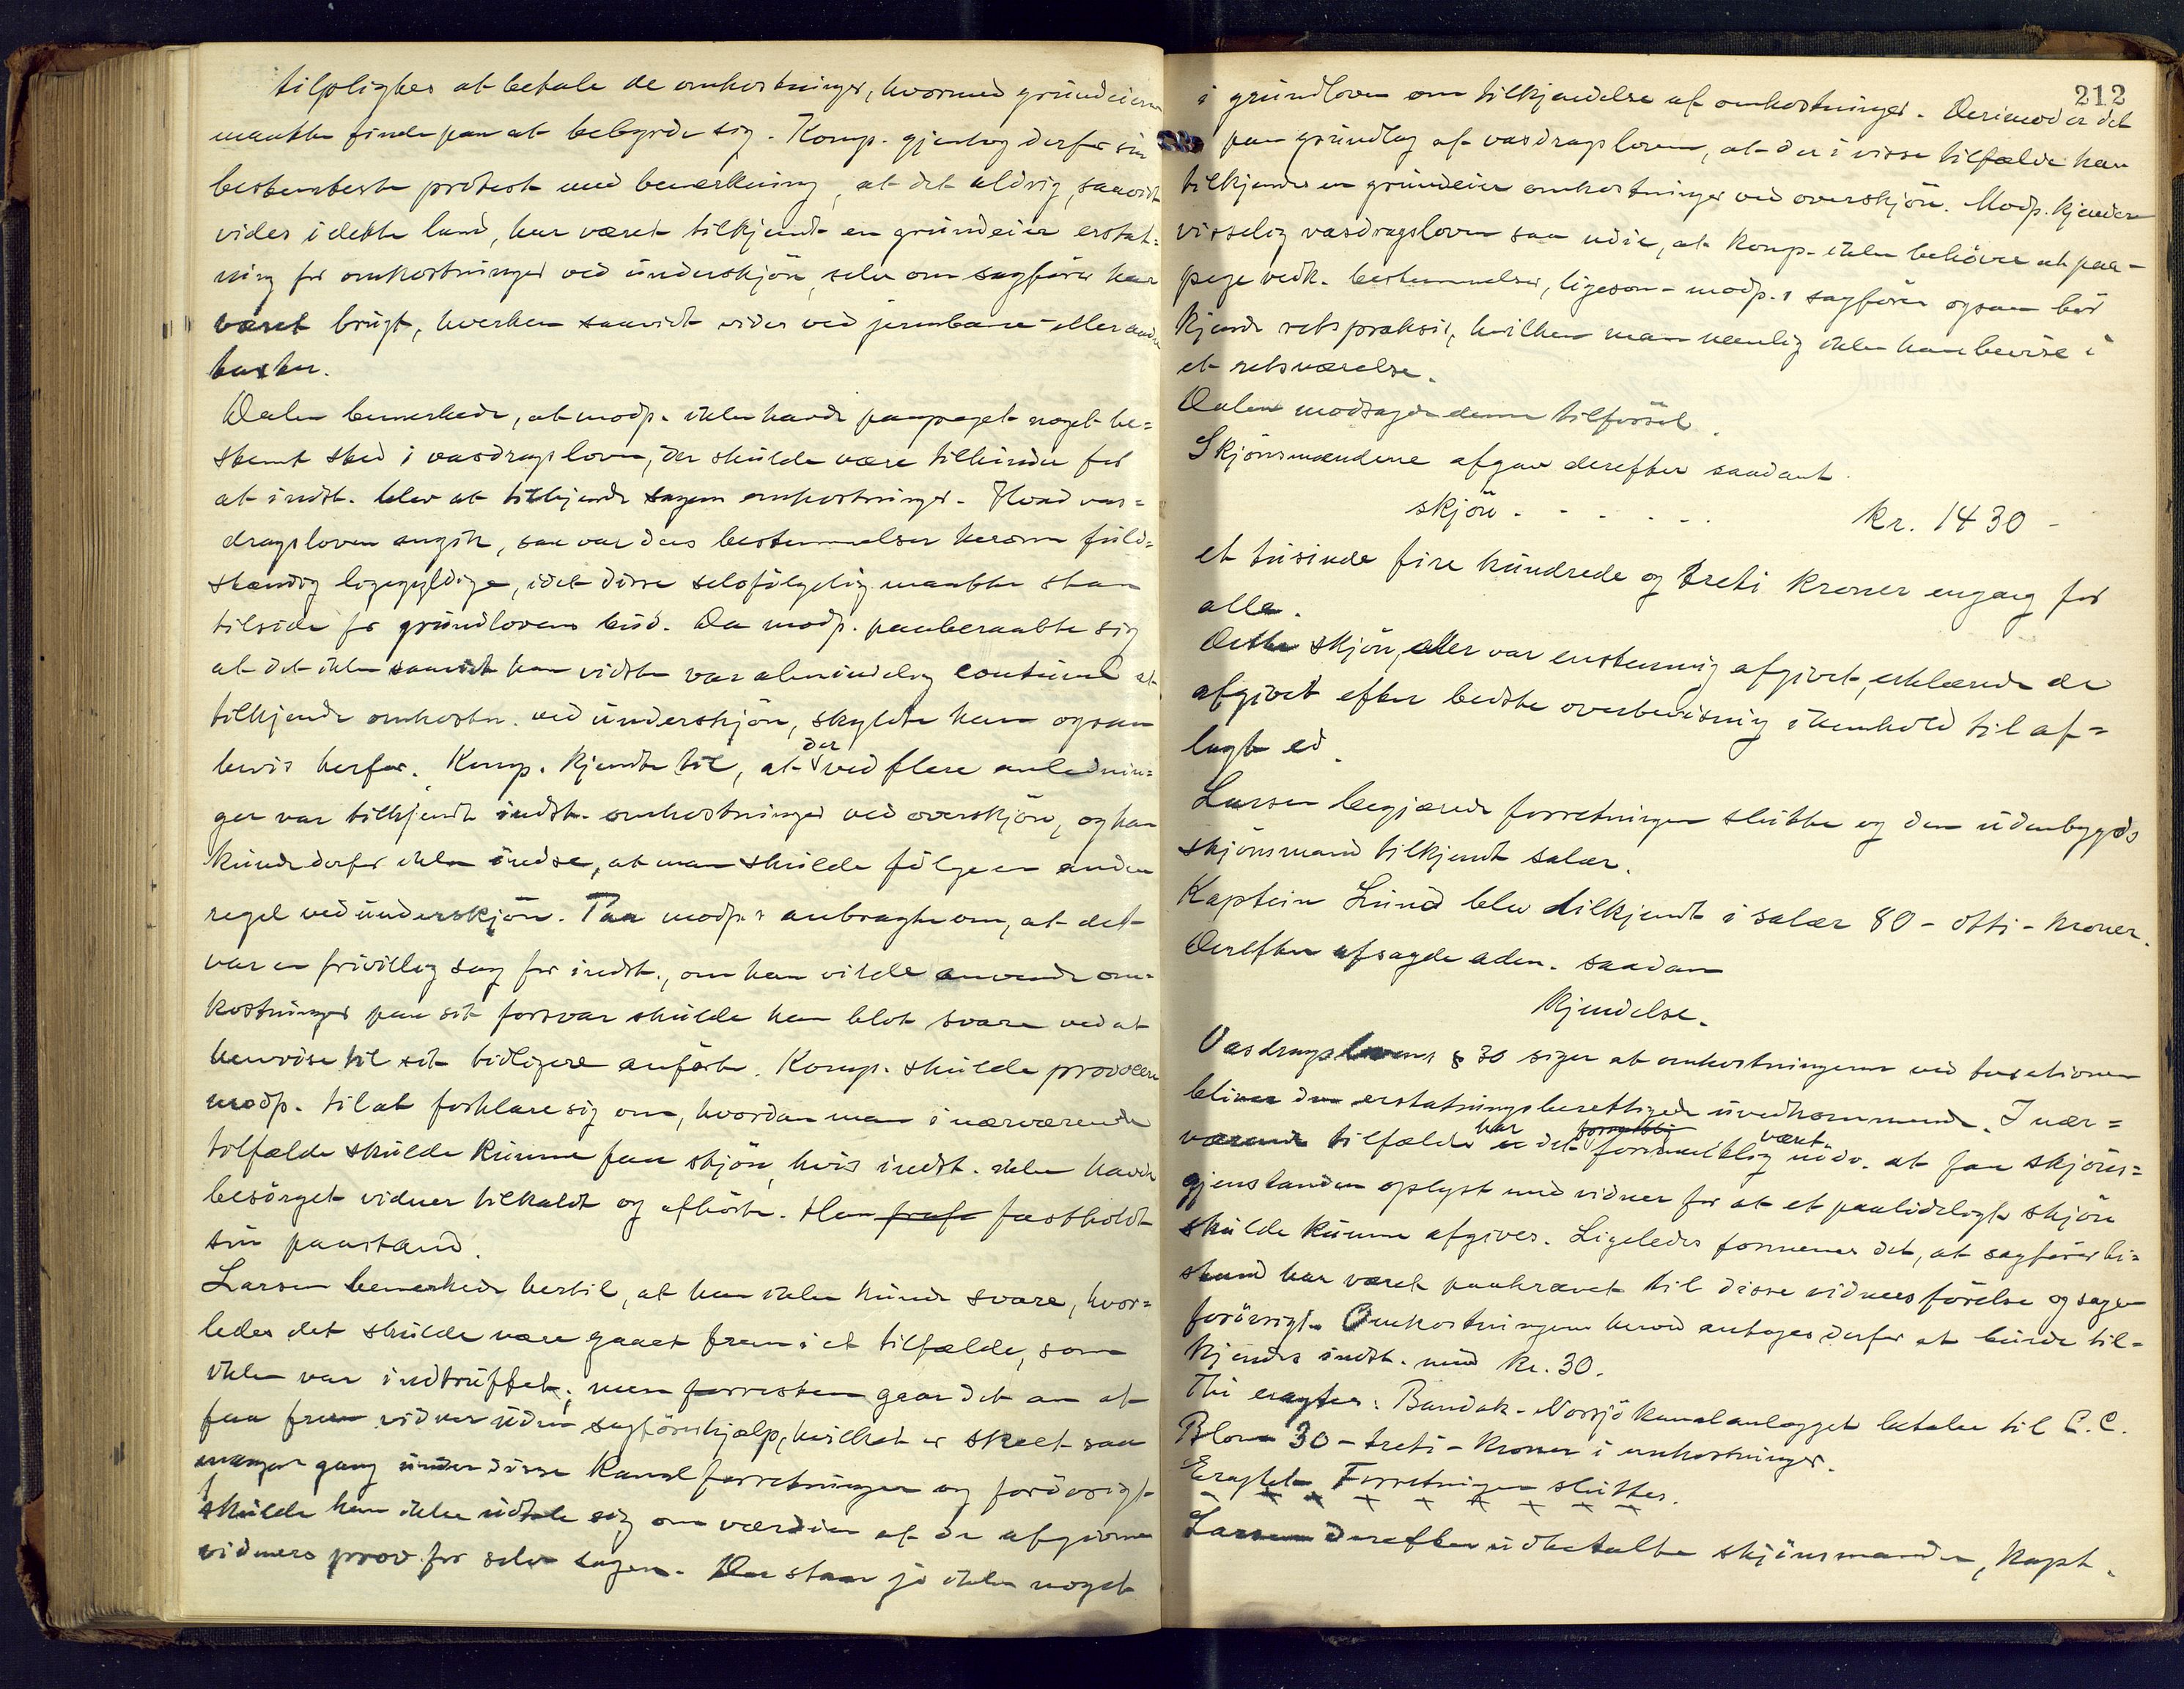 tilpligtes at betale de omkostninger, hvormed grundeieren
maatte finde paa at bebyrde sig. Komp. gjentog derfor sin
bestemteste protest med bemærkning, at det aldrig, saavidt
vides i dette land, har været tilkjendt en grundeier erstat=
ning for omkostninger ved underskjön, selv om sagförer har
været brugt, hverken saavidt vides ved jernbane- eller andre
takster.
Dalen bemerkede, at modp. ikke havde paapeget noget be=
stemt sted i vasdragsloven, der skulde være tilhinder for
at indst. blev at tilkjende sagens omkostninger. Hvad vas=
dragsloven angik, saa var dens bestemmelser herom fuld=
stændig ligegyldige, idet disse selvfölgelig maatte staa
tilside for grundlovens bud. Da modp. paaberaabte sig
at det ikke saavidt han vidste var almindelig coutume at
tilkjende omkostn. ved underskjön, skyldte han ogsaa
bevis herfor. Komp. kjendte til, at der ved flere anlednin=
ger var tilkjendt indst. omkostninger ved overskjön, og han
kunde derfor ikke indse, at man skulde fölge en anden
regel ved underskjön. Paa modp.s anbragte om, at det
var en frivillig sag for indst., om han vilde anvende om=
kostninger paa sit forsvar skulde han blot svare ved at
henvise til sit tidligere anförte. Komp. skulde provocere
modp. til at forklare sig om, hvordan man i nærværende
tilfælde skulde kunne faa skjön, hvis indst. ikke havde
besörget vidner tilkaldt og afhörte. Han fastholdt
sin paastand.
Larsen bemerkede hertil, at han ikke kunde svare, hvor=
ledes det skulde være gaaet frem i et tilfælde, som
ikke var indtruffet; men forresten gaar det an at
faa frem vidner uden sagförerhjælp, hvilket er skeet saa
mangen gang under disse kanalforretninger og forövrigt
skulde han ikke udtale sig om værdien af de afgivne
vidners prov for selve sagen. Der staar jo ikke noget
212
i grundloven om tilkjendelse af omkostninger. Derimod er det
paa grundlag af vasdragsloven, at der i visse tilfælde kan
tilkjendes en grundeier omkostninger ved overskjön. Modp. kjender
visselig vasdragsloven saa nöie, at komp. ikke behöver at paa=
pege vedk. bestemmelser, ligesom modp.s sagförer ogsaa bör
kjende retspraksis, hvilken man nemlig ikke kan bevise i
et retsværelse.
Dalen modsagde denne tilförsel.
Skjönsmændene afgav derefter saadant
skjön . - - . - .. kr. 1430 -
et tusinde fire hundrede og treti kroner engang for
alle.
Dette skjön, eller var enstemmig afgivet, erklærede de
afgivet efter bedste overbevisning i henhold til af=
lagt ed.
Larsen begjærede forretningen sluttet og den udenbygds
skjönsmand tilkjendt salær.
Kaptein Lund blev tilkjendt i salær 80 - otti - kroner.
Derefter afsagde adm. saadan
Kjendelse.
Vasdragslovens § 30 siger at omkostningerne ved taxationen
bliver den erstatningsberettigede uvedkommende. I nær=
værende tilfælde har det formentlig været nödv. at faa skjöns=
gjenstanden oplyst med vidner for at et paalideligt skjön
skulde kunne afgives. Ligeledes formenes det, at sagförerbi=
stand har været paakrævet til disse vidners förelse og sagen
forövrigt. Omkostningerne herved antages derfor at burde til=
kjendes indst. med kr. 30.
Thi eragtes: Bandak-Norsjö kanalanlægget betaler til C.C.
Blom 30 - treti - kroner i omkostninger.
Eragtet: Forretningen sluttes.
Larsen derefter udbetalte skjönsmanden, Kapt.